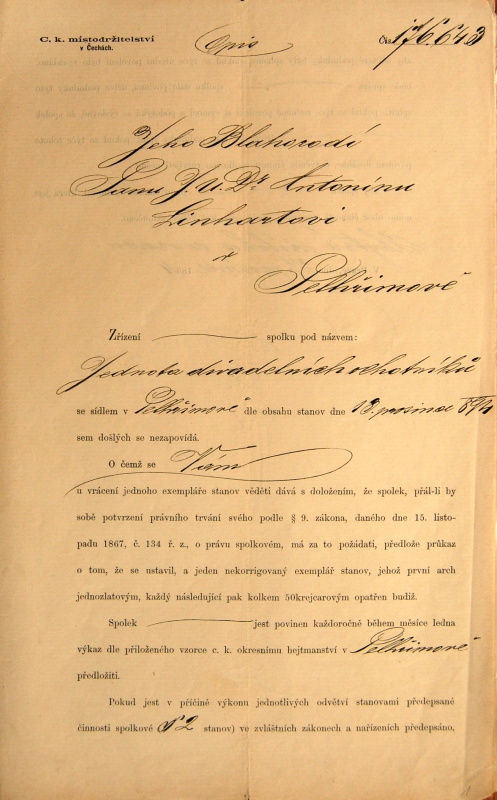 C. k. místodržitelství
v Čechách.
Opis
Čís. 176.643
Jeho Blahorodí
Panu J. U. Dr. Antonínu
Linhartovi
v
Pelhřimově
Zřízení spolku pod názvem:
Jednota divadelních ochotníků
se sídlem v Pelhřimově dle obsahu stanov dne 18. prosince
sem došlých se nezapovídá.
O čemž se Vám
u vrácení jednoho exempláře stanov věděti dává s doložením, že spolek, přál-li by
sobě potvrzení právního trvání svého podle § 9. zákona, daného dne 15. listo-
padu 1867, č. 134 ř. z., o právu spolkovém, má za to požádati, předlože průkaz
o tom, že se ustavil, a jeden nekorrigovaný exemplář stanov, jehož první arch
jednozlatovým, každý následující pak kolkem 50krejcarovým opatřen budiž.
Spolek jest povinen každoročně během měsíce ledna
výkaz dle přiloženého vzorce c. k. okresnímu hejtmanství v Pelhřimově
předložiti.
Pokud jest v příčině výkonu jednotlivých odvětví stanovami předepsané
činnosti spolkové § 2 stanov) ve zvláštních zákonech a nařízeních předepsáno,